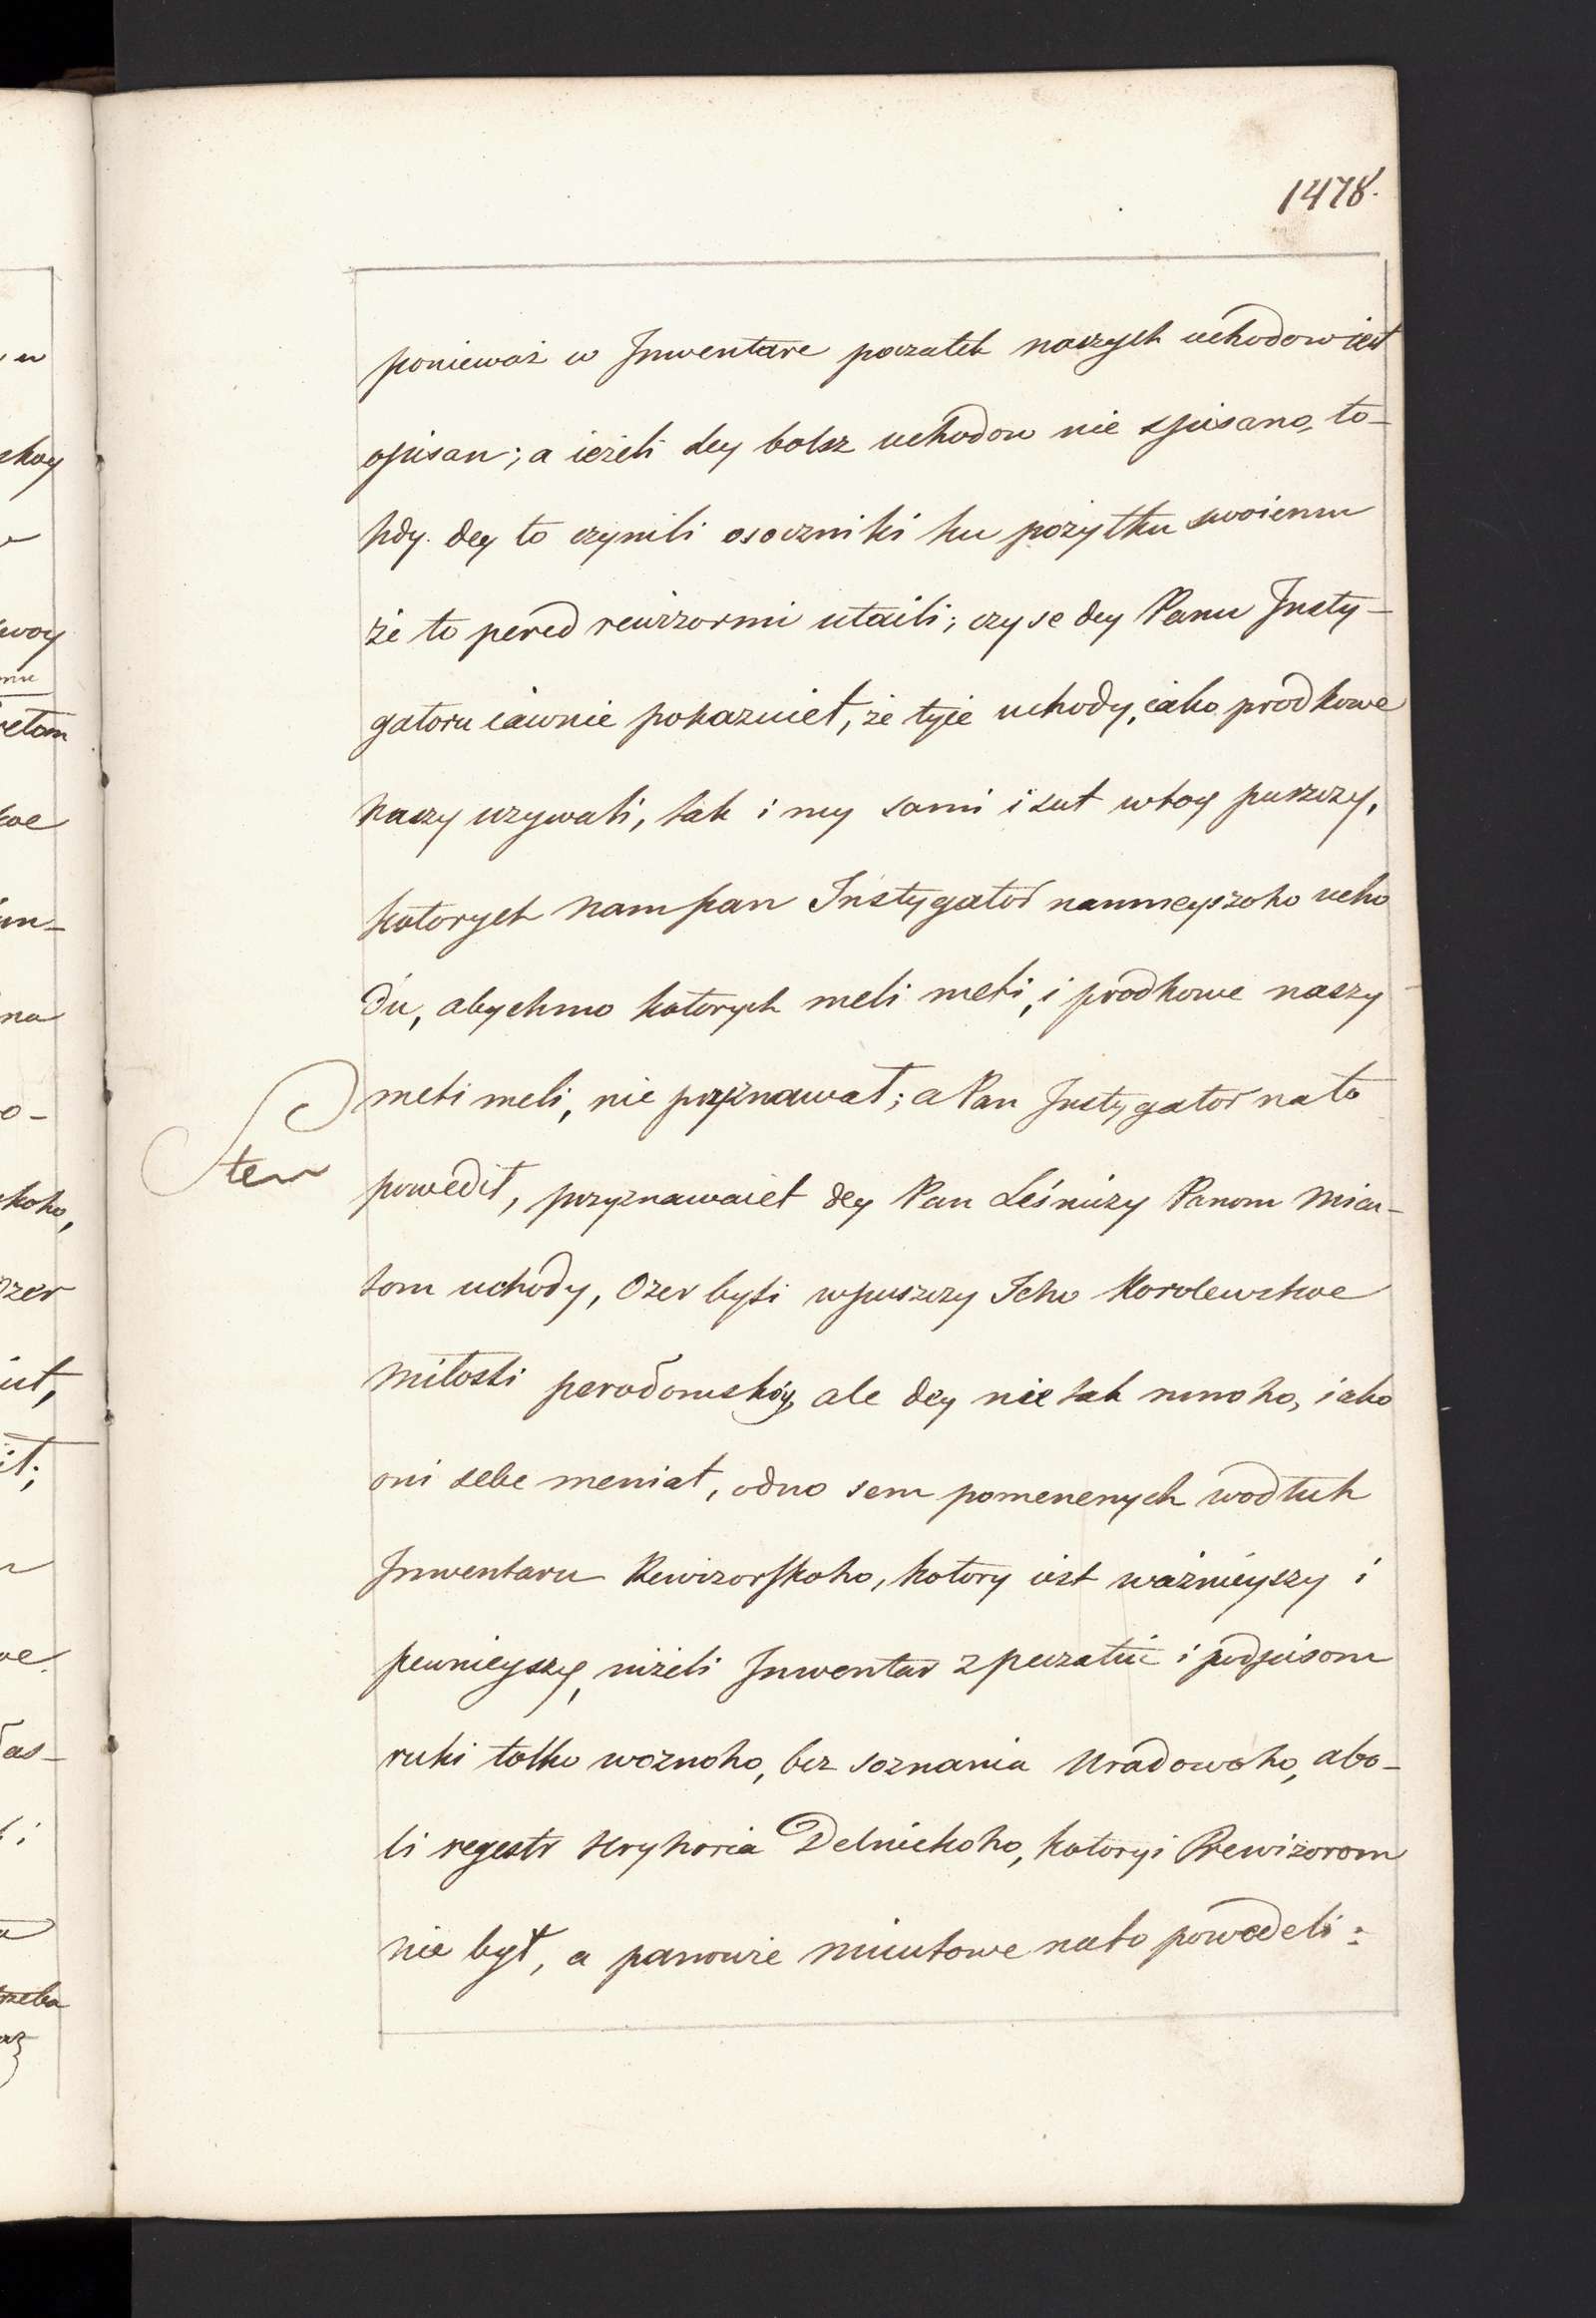 1478.
ponieważ w Inwentare poczatek naszych uchodow iest
opisan; a ieżeli dey bolsz uchodow nie spisano, to-
hdy. dey to czynili osoczniki ku pożytku swoiemu
że to pered rewizormi utaili; czyse dey Panu Insty-
gatoru iawnie pokazuiet, że tyie uchody, iako prodkowe
naszy uzywali, tak i my sami i sut wtoy puszczy,
kotorych nam pan Instygator naymeyszoho ucho
du, abychmo kotorych meli meti, i prodkowe naszy
meti meli, nie pryznawat; a Pan Instygator na to
powedit, przyznawaiet dey Pan Leśniczy Panom Micu-
tom uchody, Ozer byti wpuszczy Jeho Korolewskoe
Miłosti perodomskoy, ale dey nie tak mnoho, iako
oni sebe meniat, odno sem pomenenych wodłuh
Inwentaru Rewizorskoho, kotory iest ważnieyszy i
pewnieyszy, niżeli Inwentar z peczatiu i podpisom
ruki tolko woznoho, bez soznania Uradowoho, abo-
li regestr Hryhoria Delnickoho, kotoryi Rewizorom
nie był, a panowie Micutowe nato powedeli:
Sten